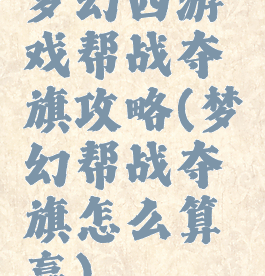 梦幻西游
戏帮战夺
旗攻略(梦
幻帮战夺
旗怎么算
赢)